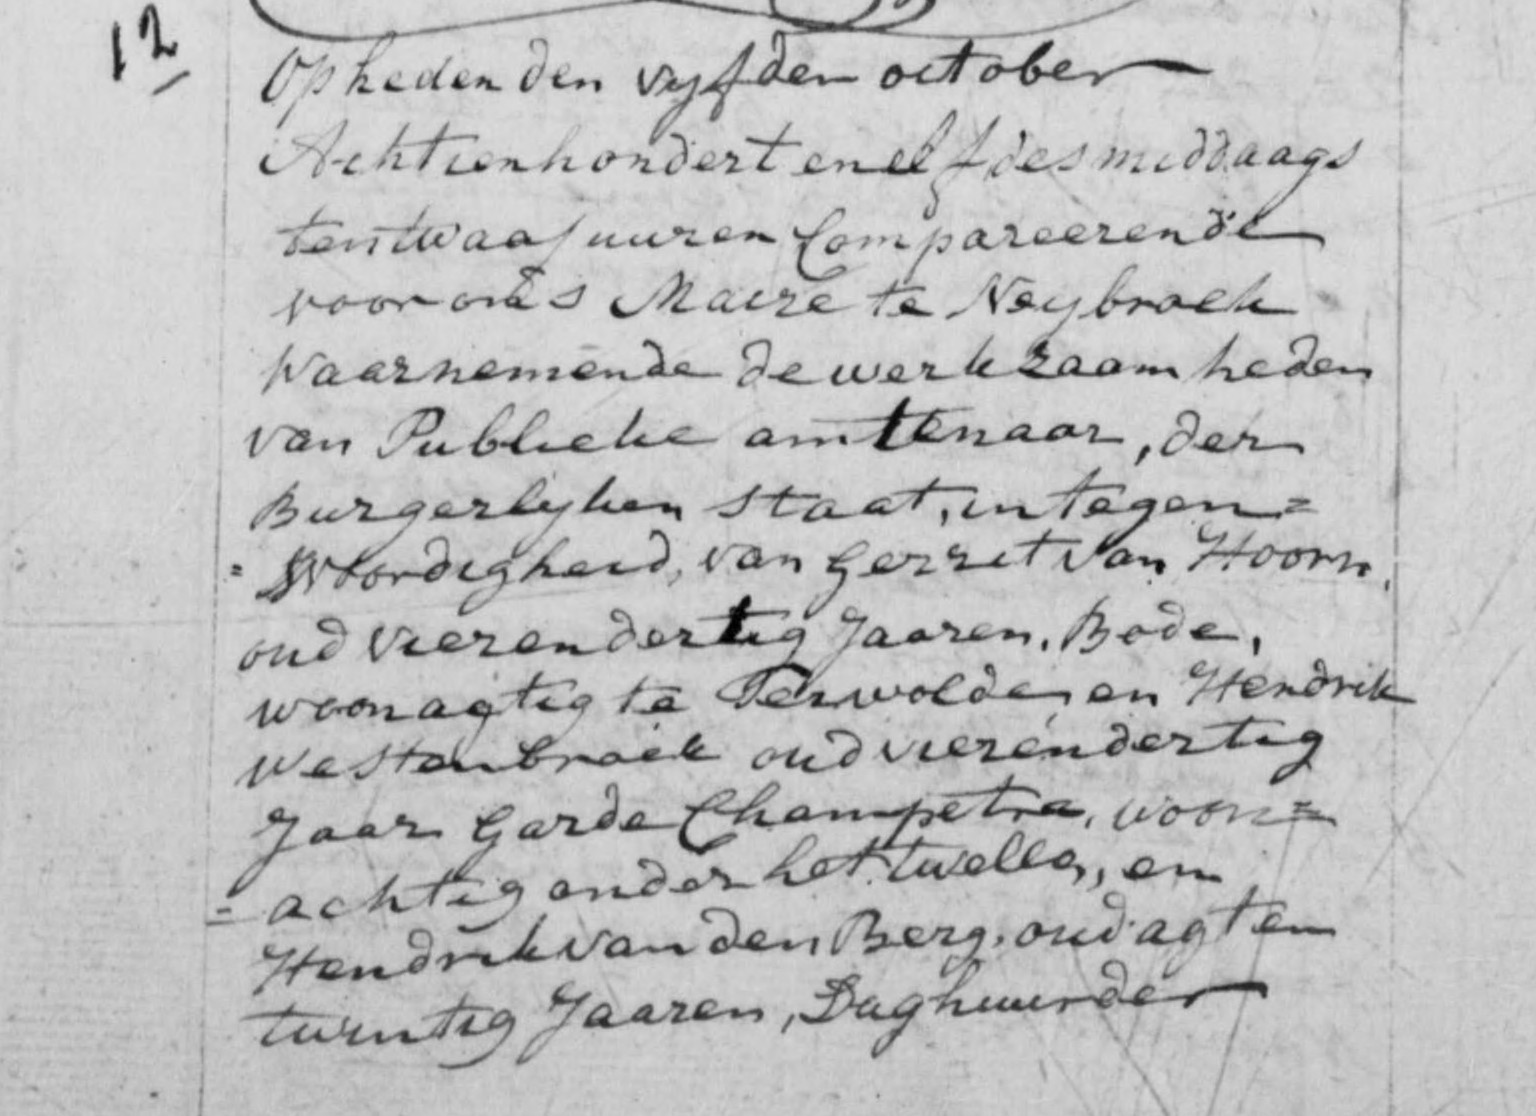 12
Op heden den vyfden october
Achtienhondert en elf des middaags
ten twaaf uuren Compareerende
voor ons Maire te Neybroek
Waarnemende de werkzaamheden
van Publieke amtenaar, der
Burgerlyken staat, in tegen=
=Woordigheid, van Gerret van Hoorn,
oud vierendertig Jaaren, Bode,
woonagtig te Terwolde, en Hendrik
Westenbroek oud vierendertig
Jaar Garde Champetre, woon=
=achtig onder het twello, en
Hendrik van den Berg, oud agt en
twintig Jaaren, Daghuurder